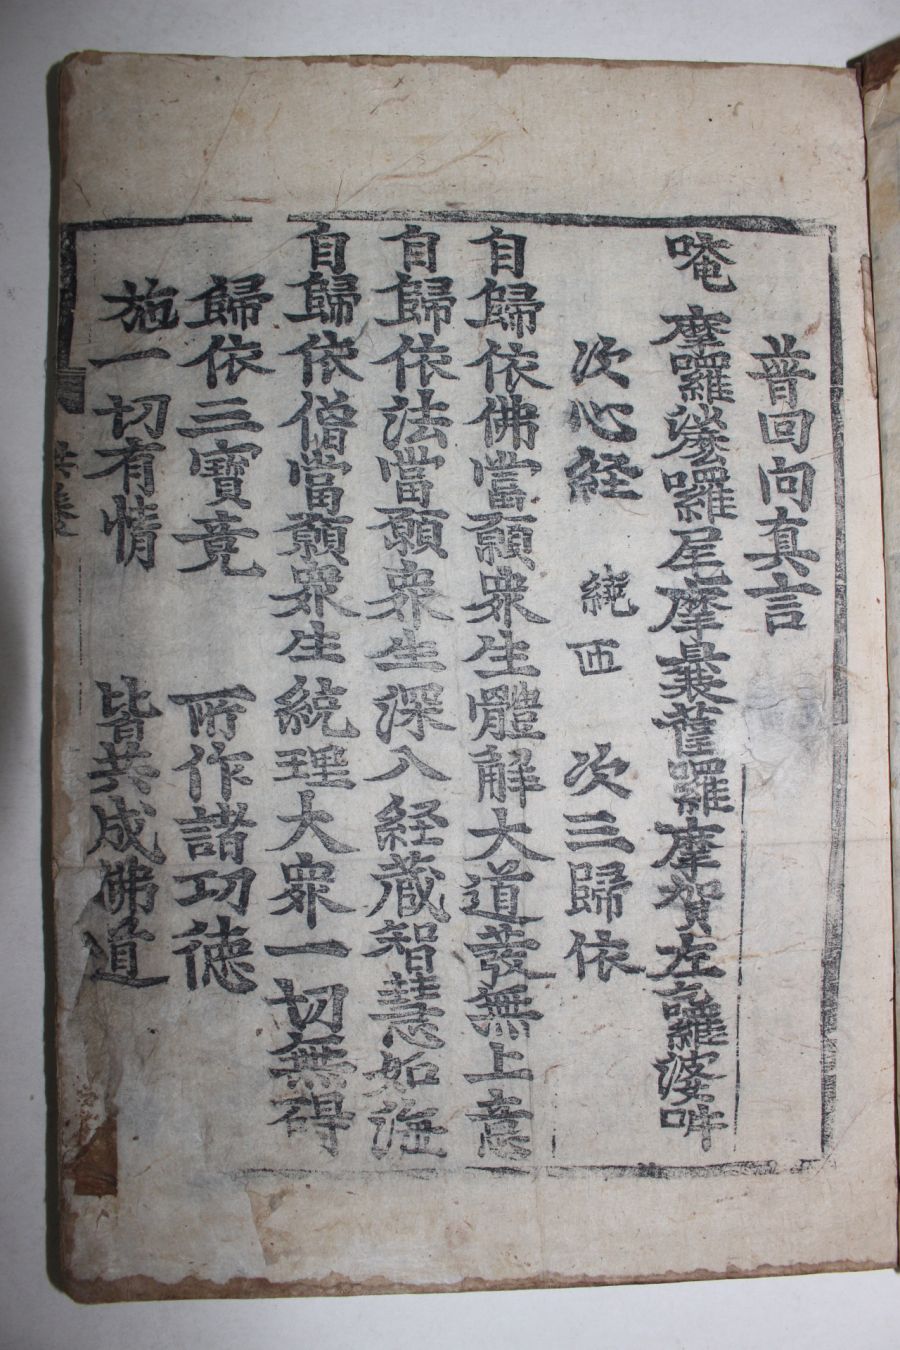 普回向真言
唵 摩囉㘕囉尼摩曩薩囉摩賀左訖囉婆吽
次心経 繞匝 次三歸依
自歸依佛當願衆生體解大道發無上意
自歸依法當願衆生深入経蔵智慧如海
自歸依僧當願衆生統理大衆一切無碍
歸依三寶竟 所作諸功徳
施一切有情 皆共成佛道